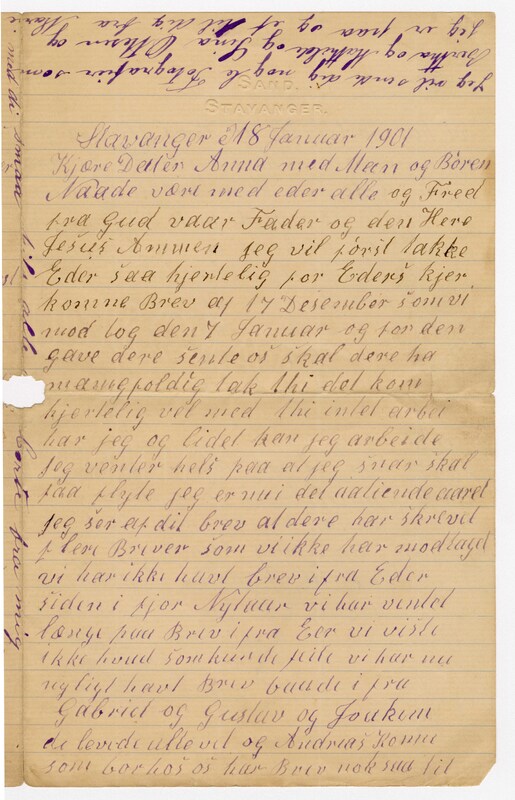 Jeg vil sende dig nogle Fotografier som
Bertha og Mathilde og Lina Olsen og
jeg er paa og et til dig fra Marie
SAND.
STAVANGER.
Stavanger d 18 Januar 1901
Kjære Datter Anna med Man og Bören
Naade være med eder alle og Fred
fra Gud vaar Fader og den Here
Jesus Ammen jeg vil först takke
Eder saa hjertelig for Eders kjer
komne Brev af 17 Desember som vi
mod tog den 7 Januar og for den
gave dere sente os skal dere ha
mangfoldig tak thi det kom
hjertelig vel med thi intet arbei
har jeg og lidet kan jeg arbeide
jeg venter hels paa at jeg snar skal
faa flyte jeg er nu i det aatiende aaret
jeg ser af dit brev at dere har skrevet
flere Brever som vi ikke har modtaget
vi har ikke havt brev ifra Eder
siden i fjor Nytaar vi har ventet
længe paa Brev ifra Eer vi viste
ikke hvad som kunde feile vi har nu
nyligt havt Brev baade i fra
Gabriel og Gustav og Joakim
de levede alle vel og Andreas Kone
som bor hos os har Brev nok saa tit
med di smaa
alle
fra mig